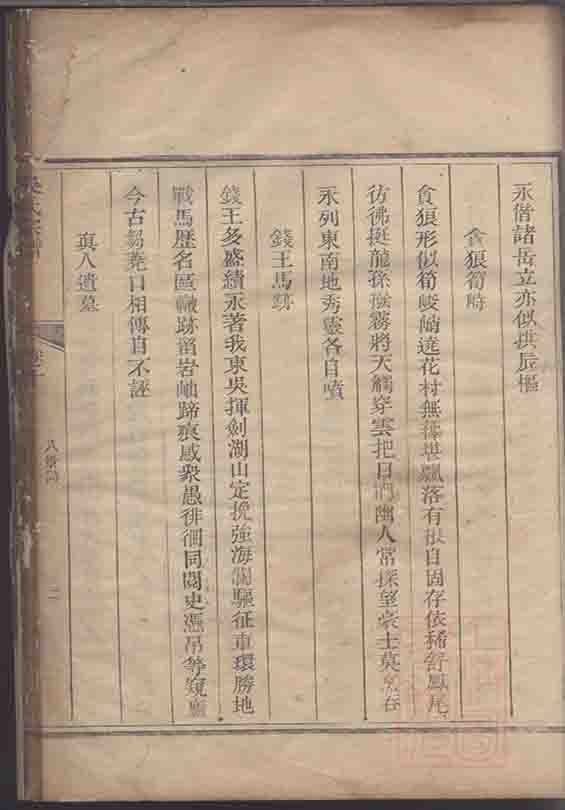 永偕諸岳立亦似拱辰樞
貪狼筍峙
貪狼形似筍峻峭達花村無籜堪飄落有根自固存依稀舒鳳尾
彷彿挺龍孫撥霧將天觸穿雲把日捫幽人常採望豪士莫
永列東南地秀靈各自噴
錢王馬跡
錢王多盛績永著我東吳揮劍湖山定挽強海瀾驅征車環勝地
戰馬歷名區轍跡留岩岫蹄痕感衆愚徘徊同閱史憑吊等窺
今古芻蕘口相傳自不誣
眞人遺墓
八景詩
二